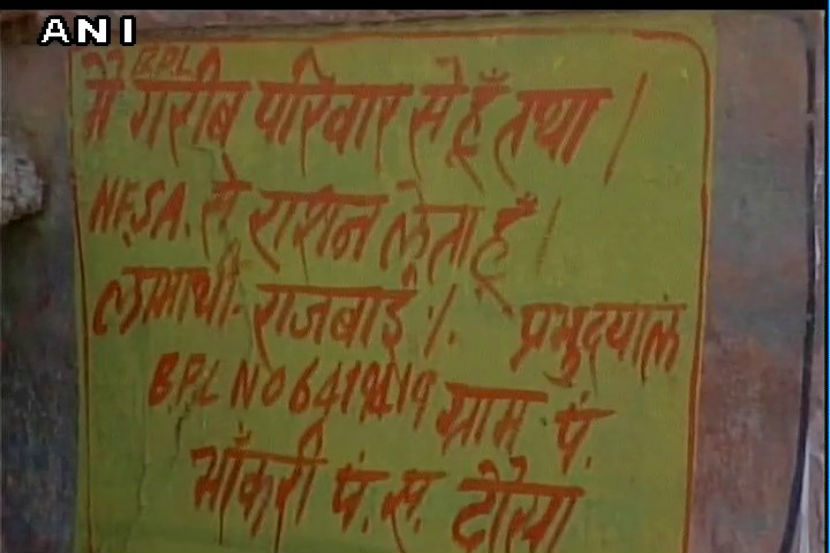 ANI
BPL
मैं गरीब परिवार से हूँ तथा ।
N.F.S.A. से राशन लेता हूँ ।
लाभार्थी - राजबाई ./. प्रभुदयाल
B.P.L NO
ग्राम पं.
भाँकरी पं. स. दौसा